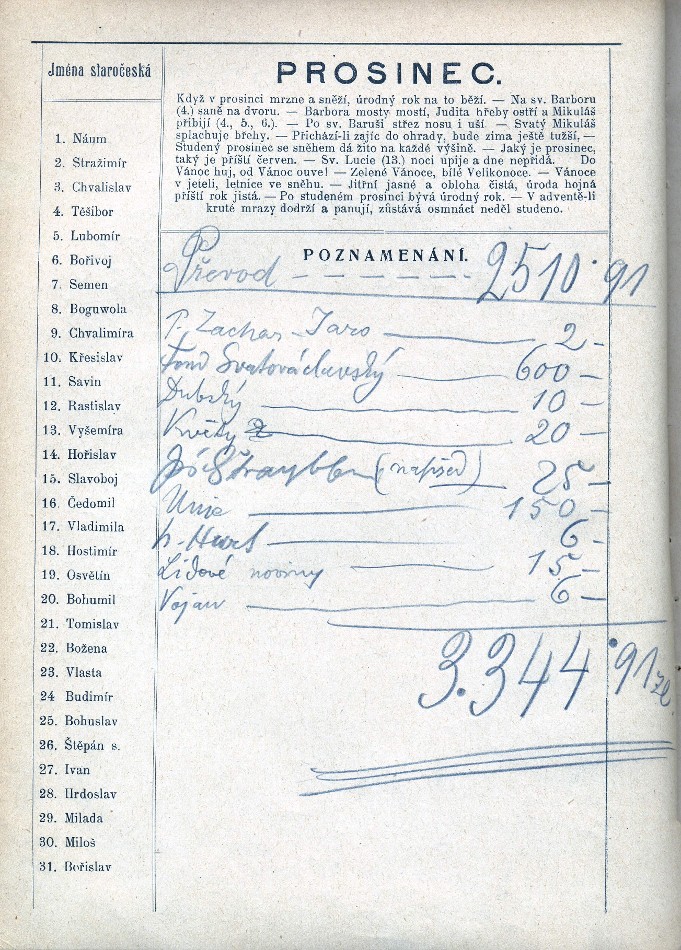 Jména staročeská
1. Náum
2. Stražimír
3. Chvalislav
4. Těšibor
5. Lubomír
6. Bořivoj
7. Semen
8. Boguwola
9. Chvalimíra
10. Křesislav
11. Savin
12. Rastislav
13. Vyšemíra
14. Hořislav
15. Slavoboj
16. Čedomil
17. Vladimila
18. Hostimír
19. Osvětín
20. Bohumil
21. Tomislav
22. Božena
23. Vlasta
24 Budimír
25. Bohuslav
26. Štěpán s.
27. Ivan
28. Hrdoslav
29. Milada
30. Miloš
31. Bořislav
PROSINEC.
Když v prosinci mrzne a sněží, úrodný rok na to běží. — Na sv. Barboru
(4.) saně na dvoru. — Barbora mosty mostí, Judita hřeby ostří a Mikuláš
přibijí (4., 5., 6.). — Po sv. Baruši střez nosu i uší. — Svatý Mikuláš
splachuje břehy. — Přichází-li zajíc do ohrady, bude zima ještě tužší, —
Studený prosinec se sněhem dá žito na každé výšině. — Jaký je prosinec,
taký je příští červen. — Sv. Lucie (13.) noci upije a dne nepřidá. Do
Vánoc huj, od Vánoc ouve! — Zelené Vánoce, bílé Velikonoce. — Vánoce
v jeteli, letnice ve sněhu. — Jitřní jasné a obloha čistá, úroda hojná
příští rok jistá. — Po studeném prosinci bývá úrodný rok. — V adventě-li
kruté mrazy dodrží a panují, zůstává osmnáct neděl studeno.
POZNAMENÁNÍ.
Převod — — — — — 2510·91
P. Zachar Jaro — 2 —
Fond Svatováclavský — 600 —
Dubský — 10 —
Květy — 20 —
(napsed) — 25 —
Unie — 150 —
— 6 —
Lidové noviny — 15 —
Vojan — 6 —
3.344·91 zl.